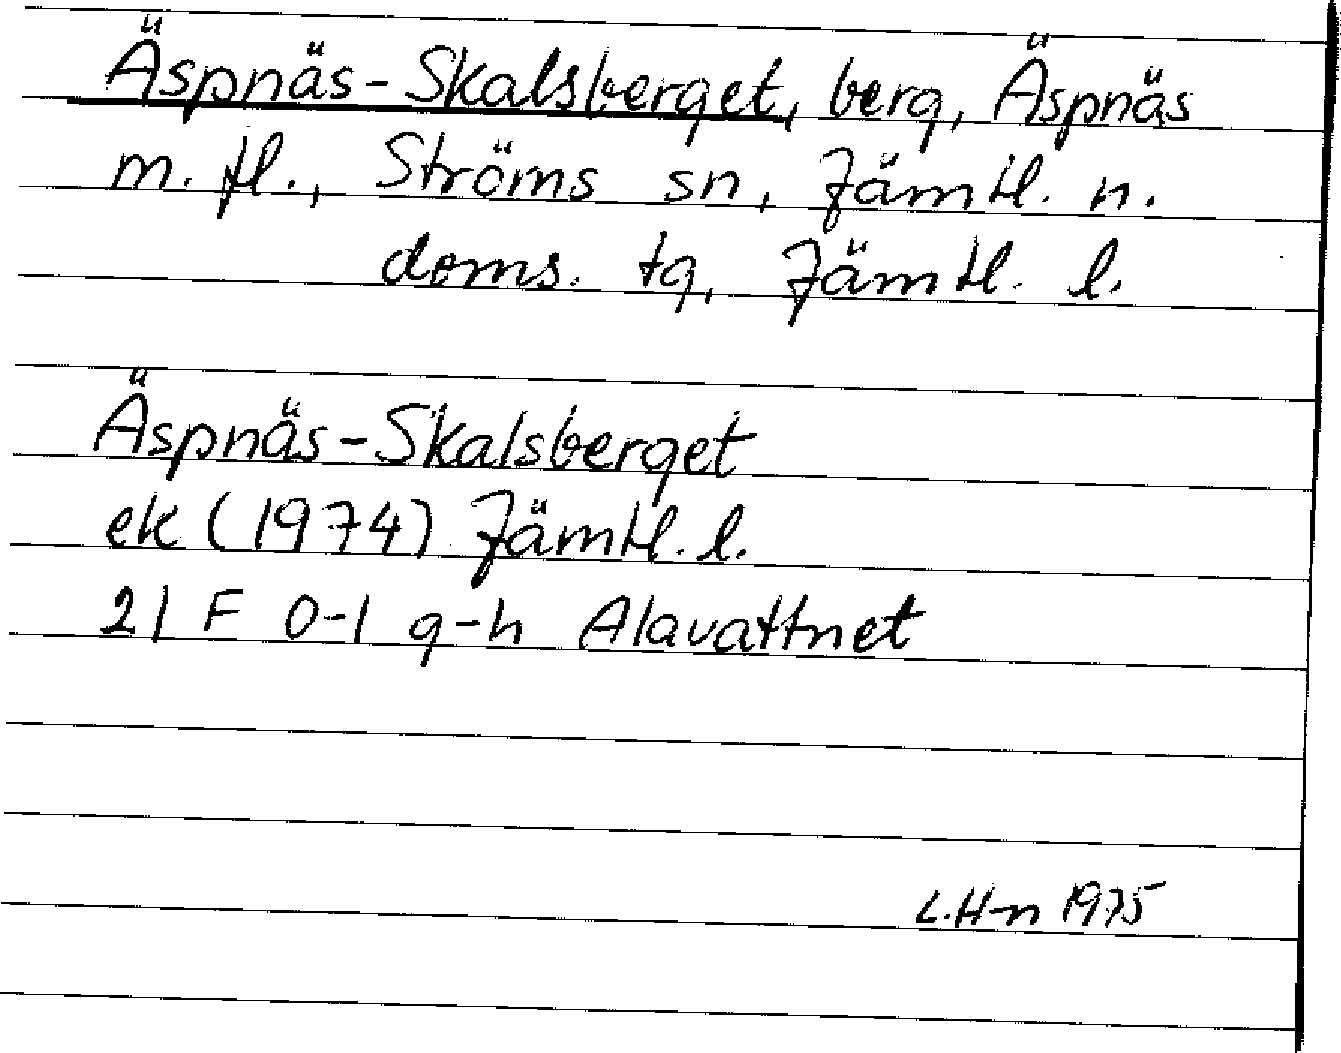 Äspnäs-Skalsberget, berg, Äspnäs
m. fl., Ströms sn, Jämtl. n.
doms. tg, Jämtl. l.
Äspnäs-Skalsberget
ek (1974) Jämtl. l.
21 F 0-1 g-h Alavattnet
L.H-n 1975